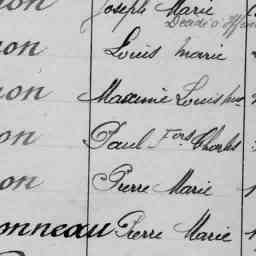 Joseph Marie
Décédé
non Louis Marie
non Maxime Louis
non Paul Fois Charles
non Pierre Marie
onneau Pierre Marie